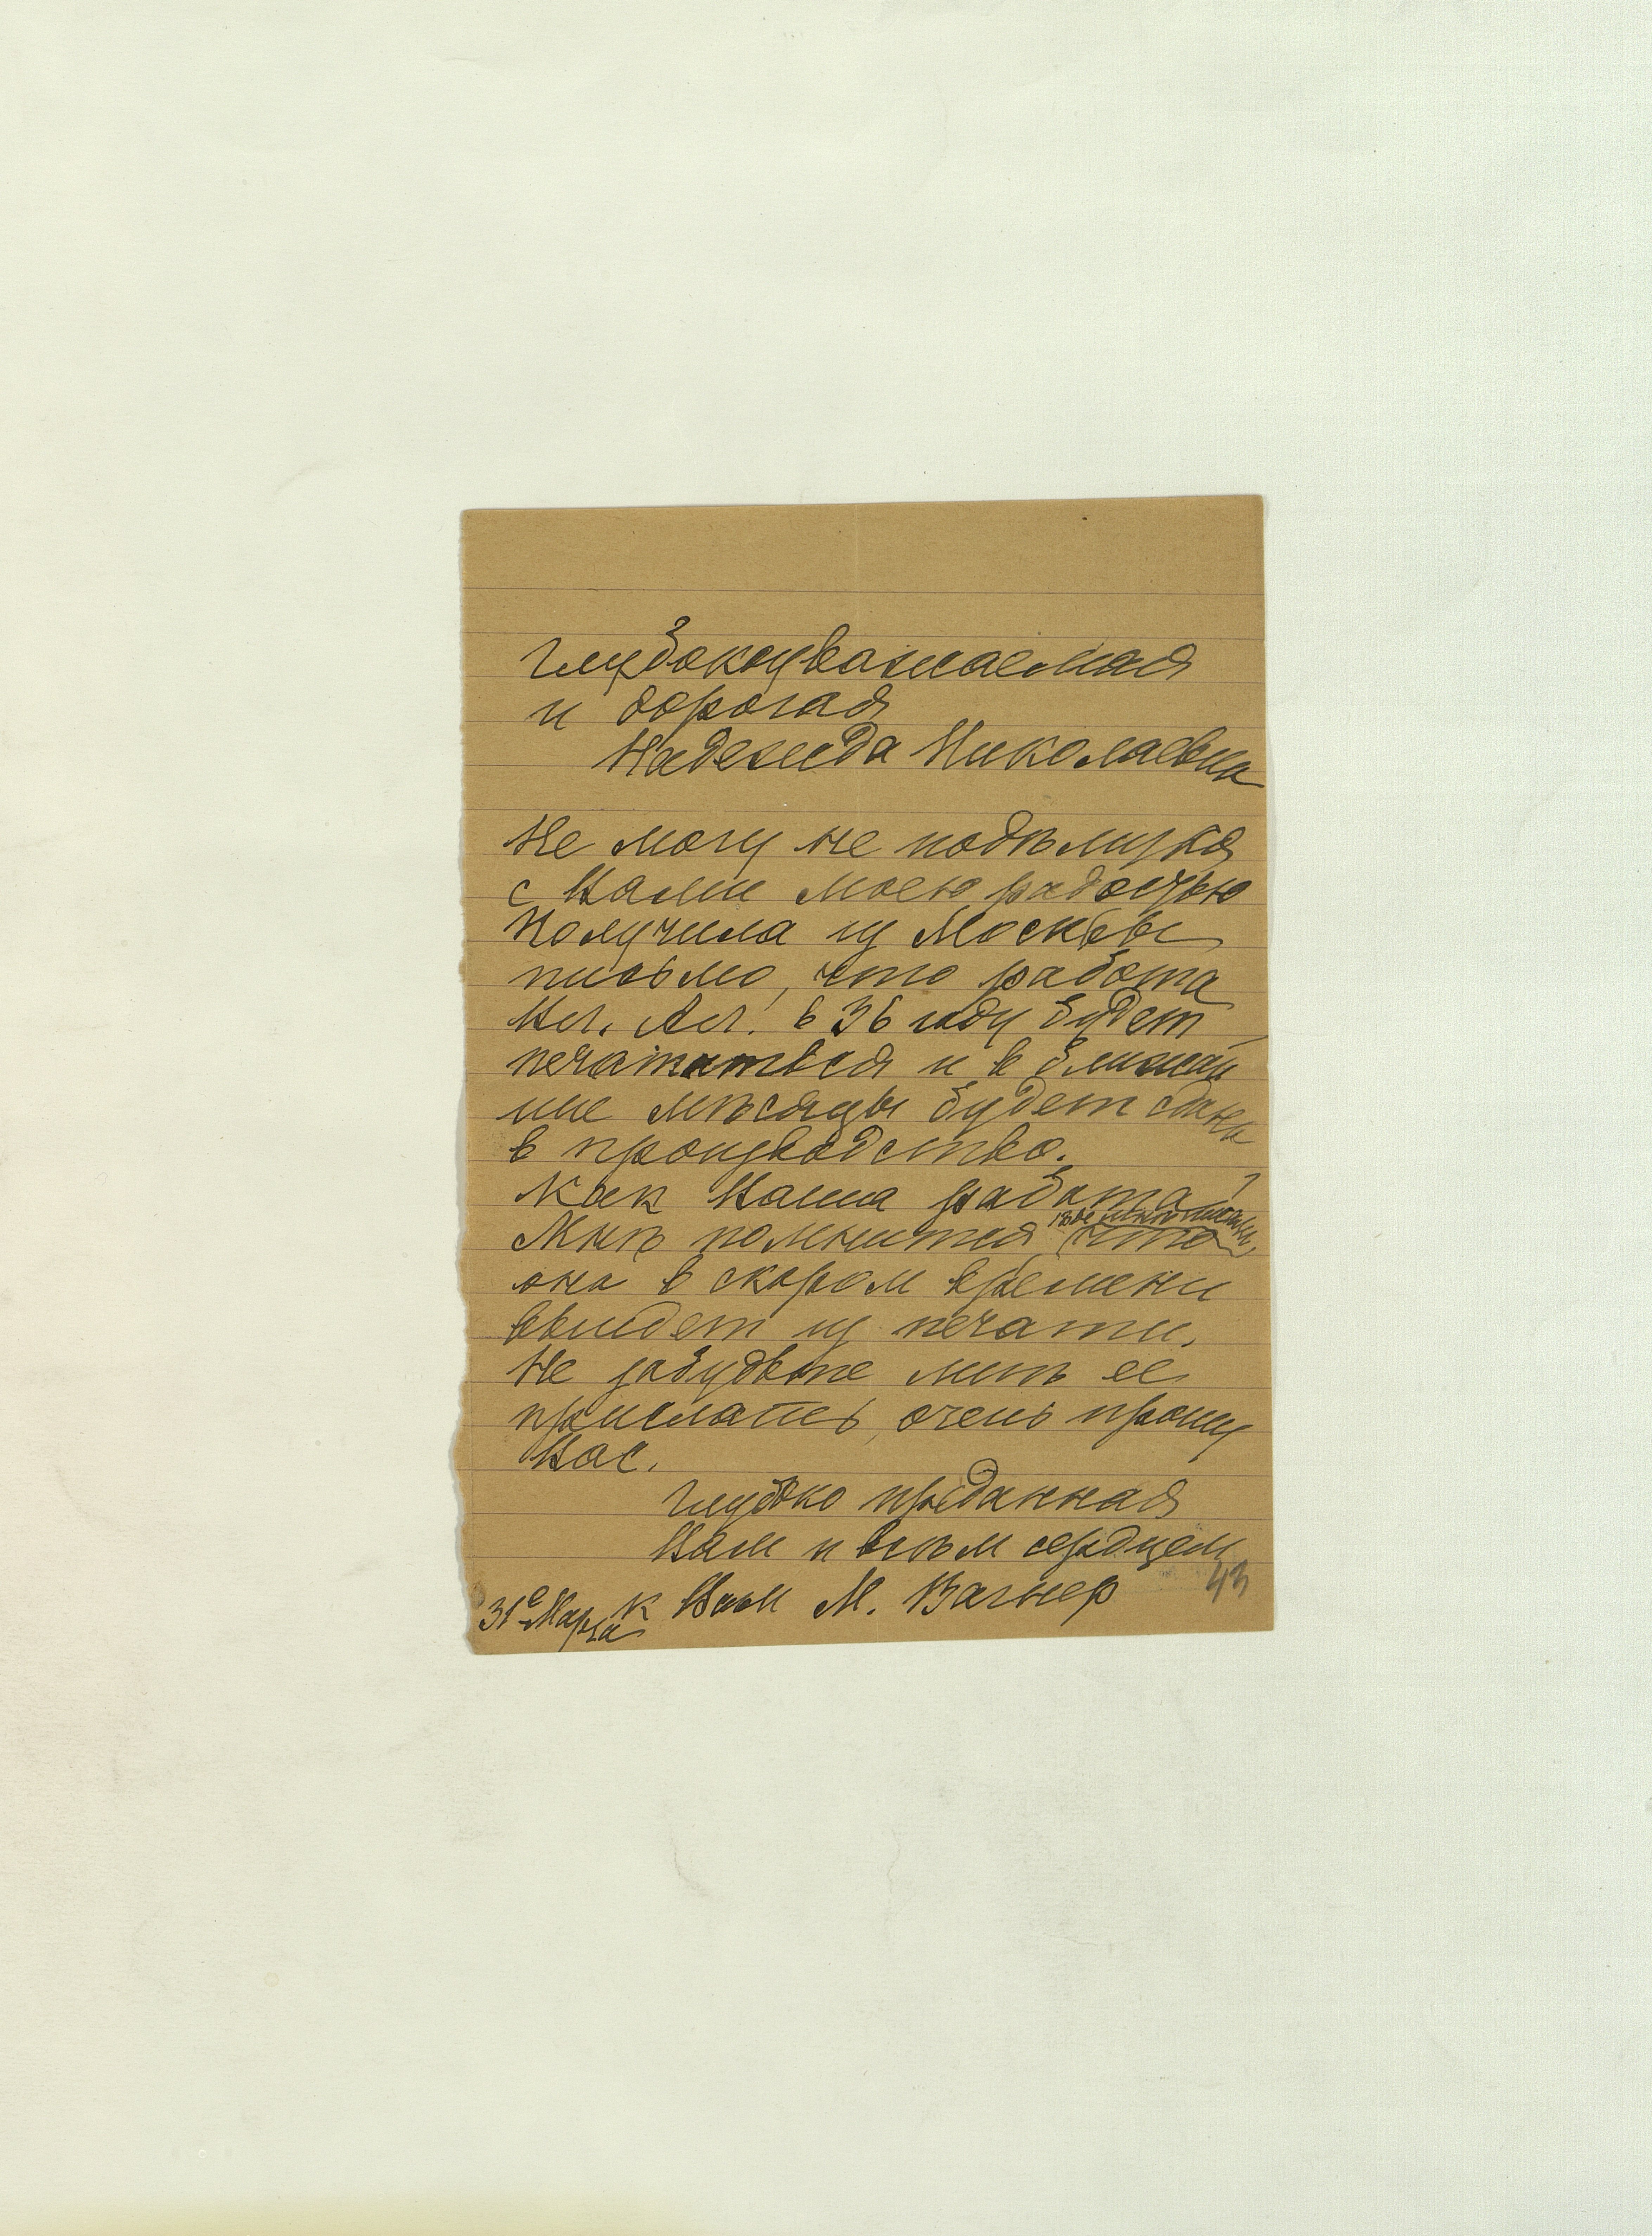 Глубокоуважаемая
и дорогая
Надежда Николаевна
Не могу не подѣлиться
с Вами моею радостью
Получила из Москвы
письмо, что работа
Вл. Ал. в 36 году будет
печататься и в ближай
шие мѣсяцы будет сдана
в производство.
Как Ваша работа?
Мнѣ помнится, что
она в скором времени
выйдет из печати.
Не забудьте мнѣ ее
прислать, очень прошу
Вас.
Глубоко преданная
Вам и всѣм сердцем
к Вам М. Вагнер
31е Марта
43